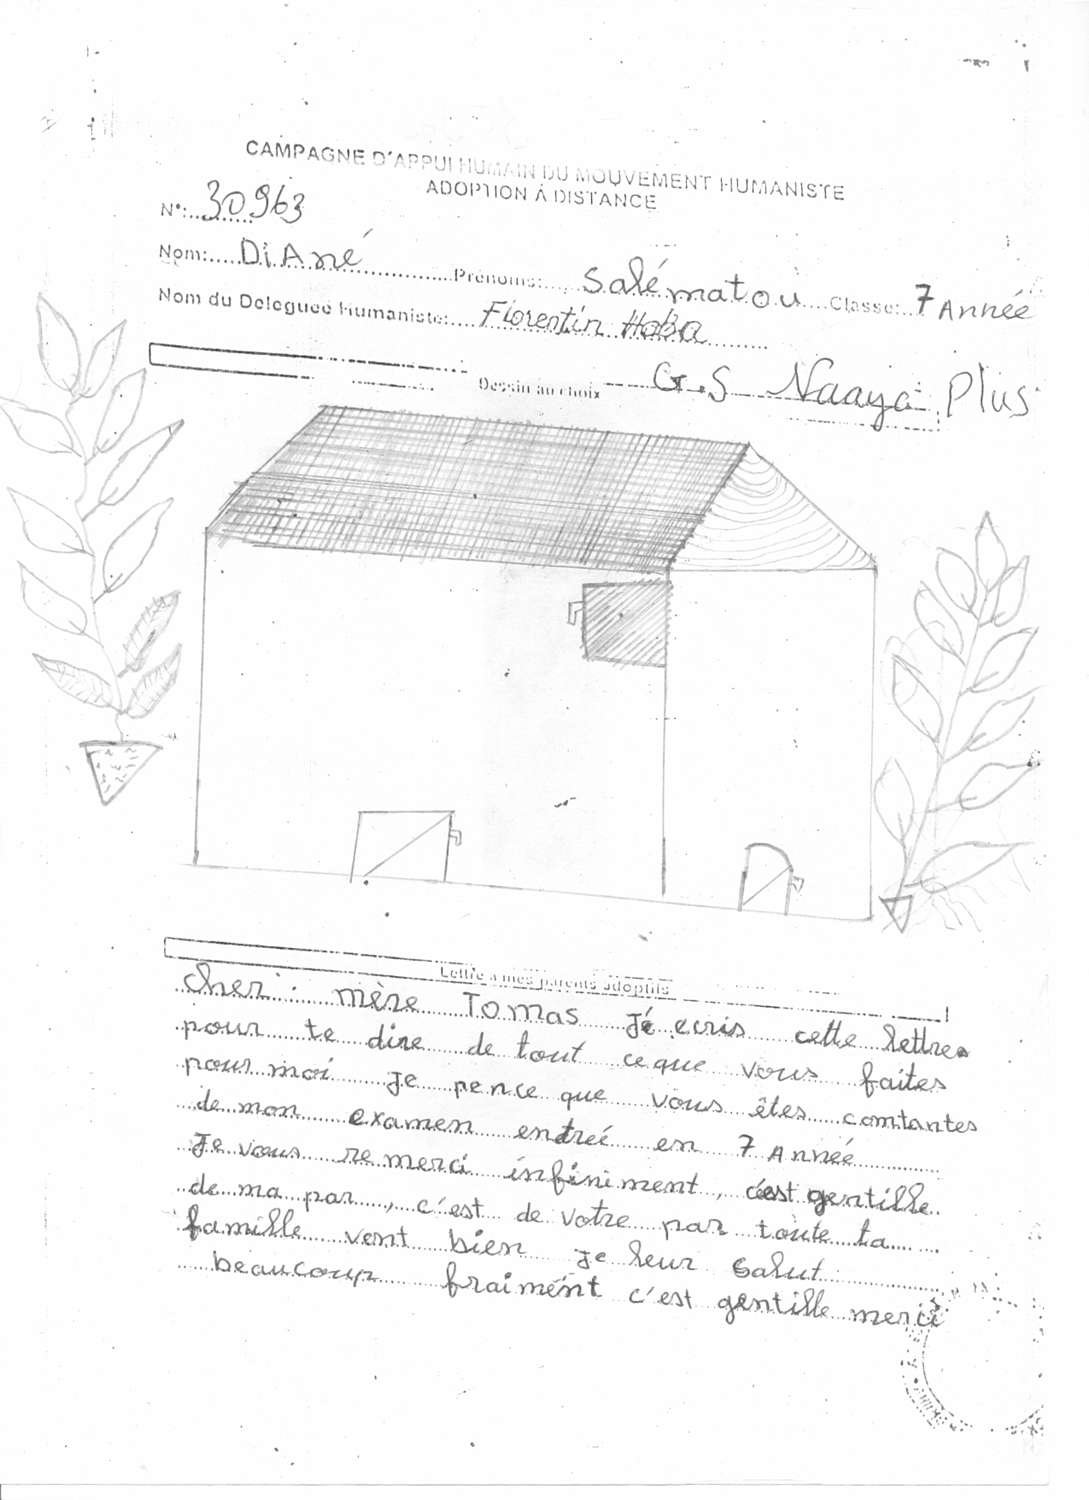 CAMPAGNE D'APPUI HUMAIN DU MOUVEMENT HUMANISTE
ADOPTION À DISTANCE
N°: 30963
Nom: DiAné Prénoms: Salématou Classe: 7 Année
Nom du Déléguée Humaniste: Florentin Haba
Dessin au choix G.S Naaya Plus
Lettre à mes parents adoptifs
cher : mère Tomas Jé ecris cette lettre
pour te dire de tout ce que vous faites
pour moi Je pence que vous êtes comtantes
de mon examen entreé en 7 Année
Je vous re merci infiniment, c'est gentille
de ma par, c'est de votre par toute ta
famille vont bien Je leur Salut
beaucoup fraimént c'est gentille merci